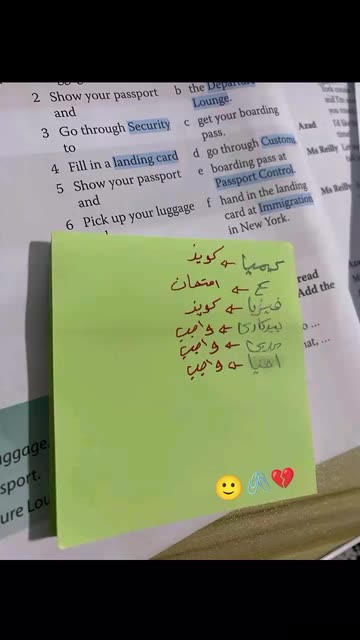 2 Show your passport and
3 Go through Security to
4 Fill in a landing card
5 Show your passport and
6 Pick up your luggage
b the Departure Lounge.
c get your boarding pass.
d go through Customs
e boarding pass at Passport Control.
f hand in the landing card at Immigration in New York.
Azad
Ms Reilly
Ms Reilly
read
Add the
كيميا ← كويز
ع ← امتحان
فيزيا ← كويز
بيركاري ← واجب
عربي ← واجب
احيا ← واجب
uggage.
sport.
ure Lou